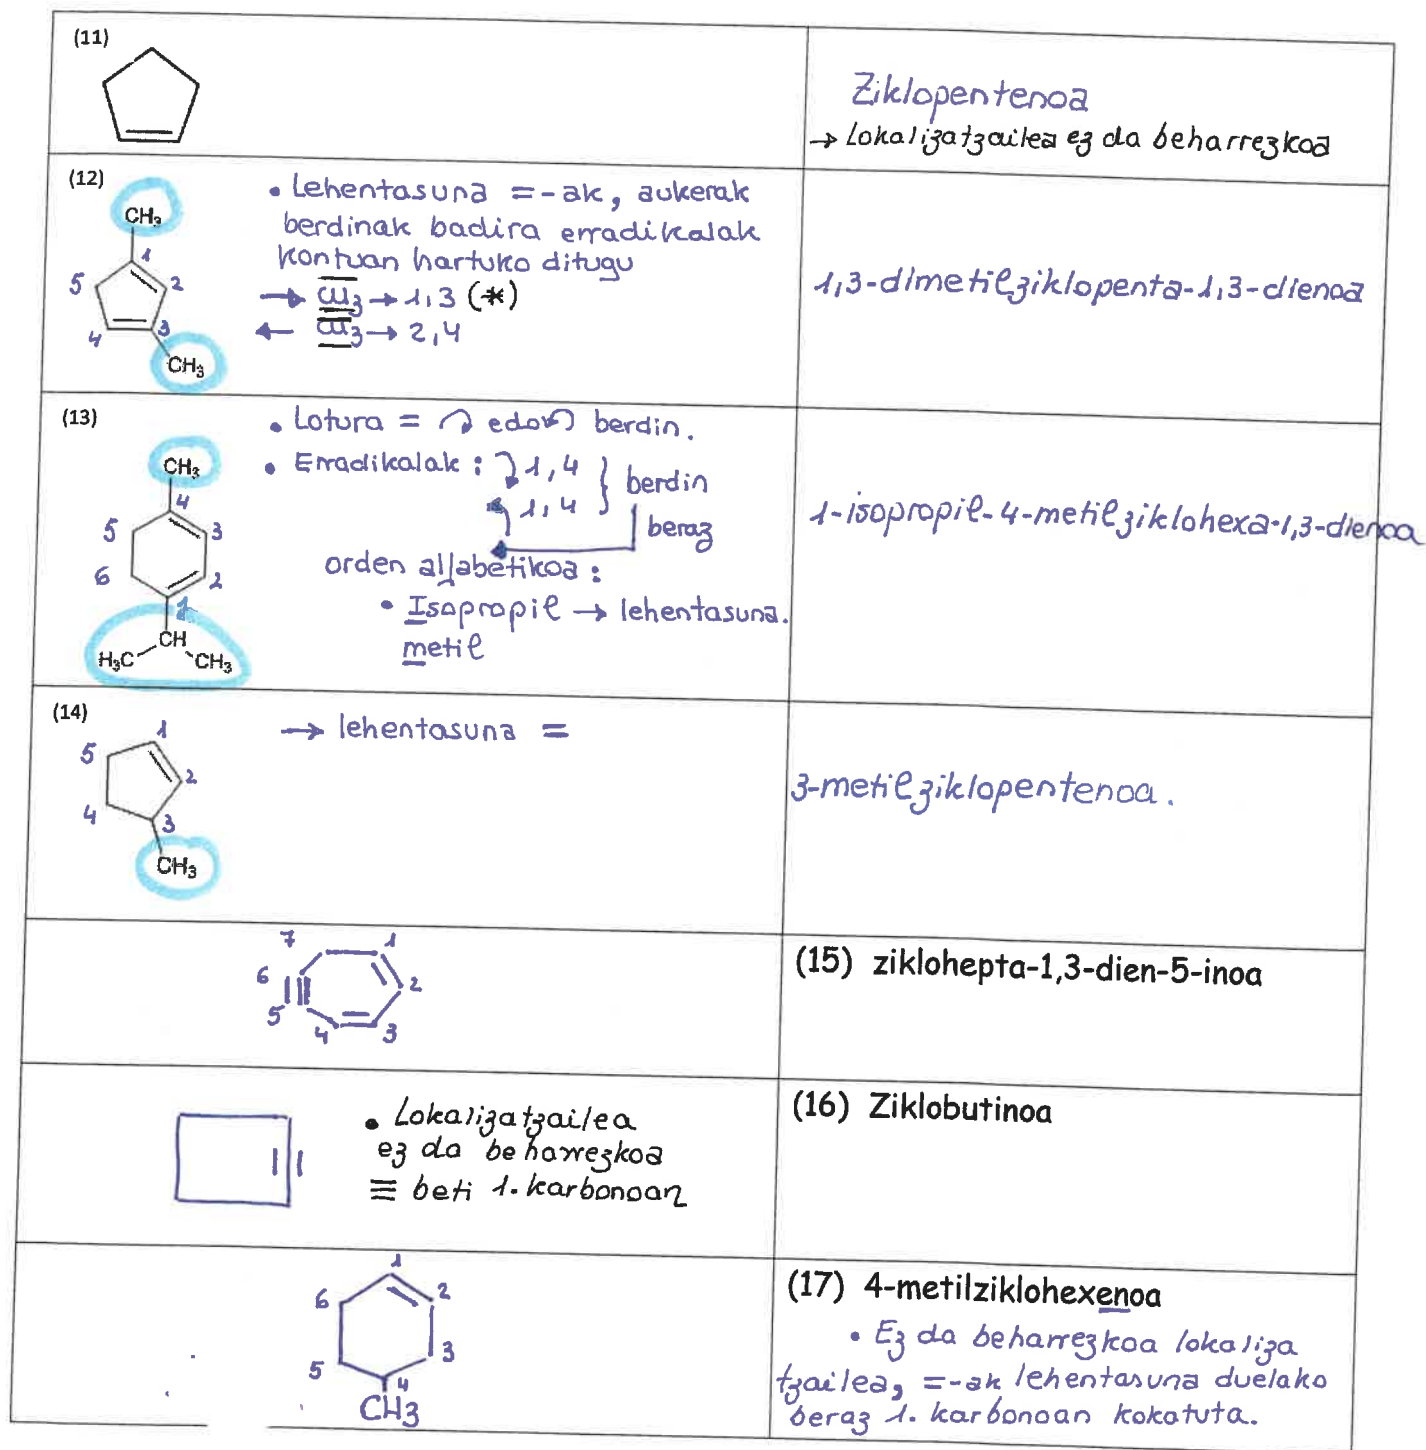 (11)
Ziklopentenoa
→ Lokalizatzailea ez da beharrezkoa
(12)
CH₃
1
2
3
4
5
CH₃
• Lehentasuna = -ak, aukerak
berdinak badira erradikalak
kontuan hartuko ditugu
→ CH₃ → 1,3 (*)
← CH₃ → 2,4
1,3-dimetilziklopenta-1,3-dienoa
(13)
CH₃
4
5
3
6
2
1
CH
H₃C
CH₃
• Lotura = ↷ edo ↶ berdin.
• Erradikalak : 1,4
1,4
} berdin
beraz
orden alfabetikoa :
• Isopropil → lehentasuna.
metil
1-isopropil-4-metilziklohexa-1,3-dienoa
(14)
1
5
2
4
3
CH₃
→ lehentasuna =
3-metilziklopentenoa.
7
1
6
2
5
4
3
(15) ziklohepta-1,3-dien-5-inoa
• Lokalizatzailea
ez da beharrezkoa
≡ beti 1. karbonoan
(16) Ziklobutinoa
1
6
2
5
3
4
CH3
(17) 4-metilziklohexenoa
• Ez da beharrezkoa lokaliza
tzailea, =-ak lehentasuna duelako
beraz 1. karbonoan kokatuta.